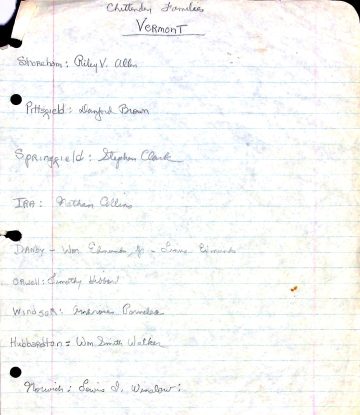 Chittenden Families
VERMONT
Shoreham: Riley V. Allen
Pittsfield: Danford Brown
Springfield: Stephen Clark
IRA: Nathan Collins
DANBY - Wm Edmunds Jr - Edmunds
Orwell: Timothy Hibbard
WINDSOR: Ambrose Parmelee
Hubbardton: Wm Smith Walker
Norwich: Lewis S. Winslow: